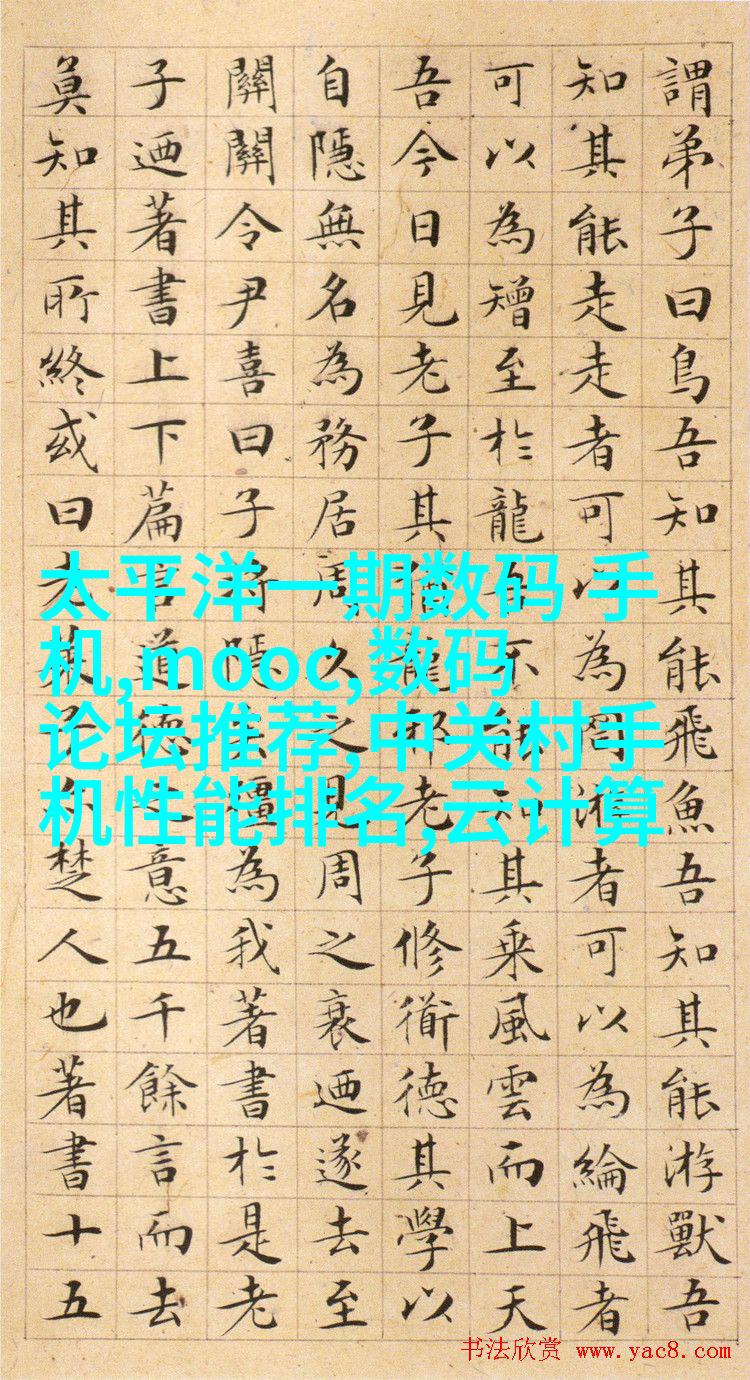 謂弟子曰鳥吾知其能飛魚吾知其能游獸吾
知其能走走者可以為罔游者可以為綸飛者
可以為矰至於龍吾不能知其乗風雲而上天
吾今日見老子其猶龍邪老子修衜德其學以
自隱無名為務居周久之見周之衰迺遂去至
關關令尹喜曰子将隱矣彊為我著書於是老
子迺著書上下篇言道德之意五千餘言而去
莫知其所終或曰老萊子亦楚人也著書十五
太平洋一期数码 手
机,mooc,数码
论坛推荐,中关村手
机性能排名,云计算
书法欣赏 www.yac8.com